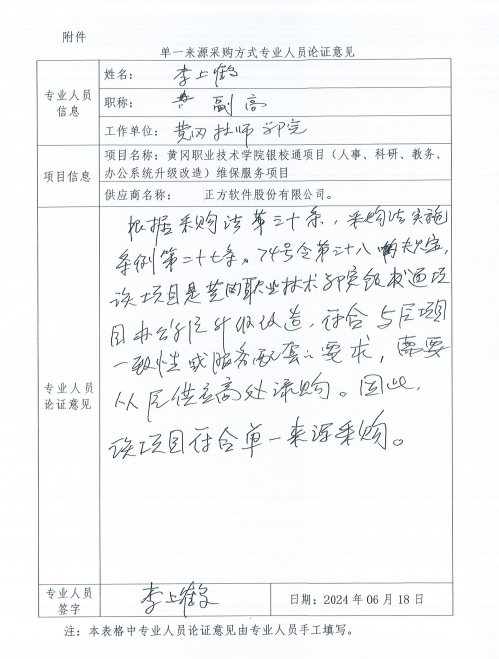 附件
单一来源采购方式专业人员论证意见
专业人员
信息
姓名：李上
职称：副高
工作单位：黄冈 师 学院
项目信息
项目名称：黄冈职业技术学院银校通项目（人事、科研、教务、
办公系统升级改造）维保服务项目
供应商名称： 正方软件股份有限公司。
专业人员
论证意见
根据采购法第三十条，采购法实施
条例第二十七条，74号令第三十八 规定，
该项目是黄冈职业技术学院银校通项
目办公 升级改造，符合与原项目
一致性或服务配套的要求，需要
从原供应商处添购。因此，
该项目符合单一来源采购。
专业人员
签字
李上
日期：2024 年 06 月 18 日
注：本表格中专业人员论证意见由专业人员手工填写。